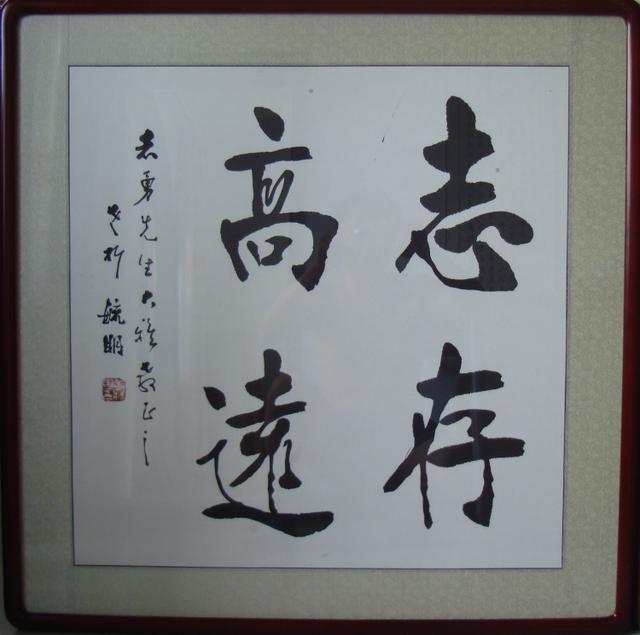 志存
高遠
志勇先生大雅教正之
毓明